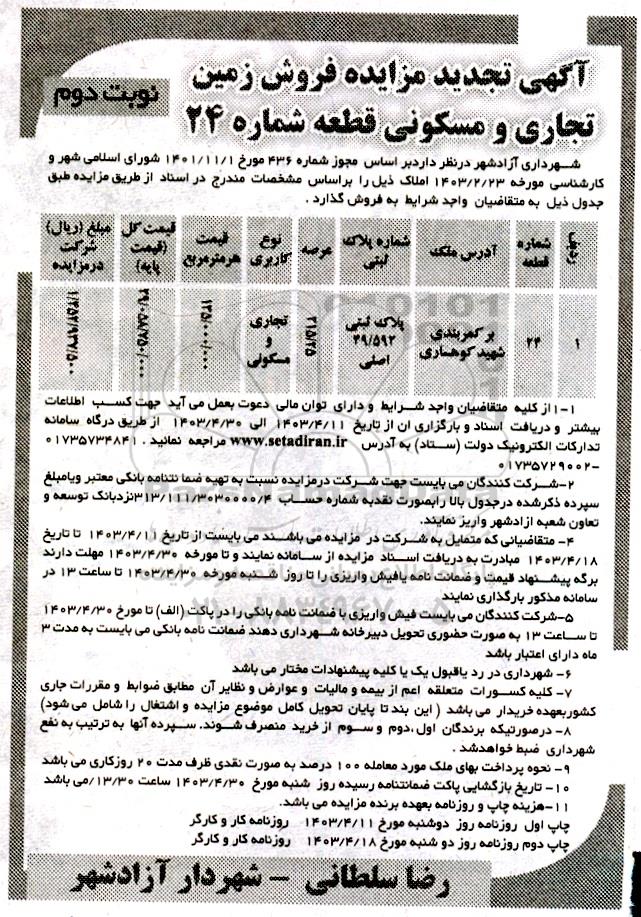 آگهی تجدید مزایده فروش زمین
تجاری و مسکونی قطعه شماره ۲۴
نوبت دوم
شـــهرداری آزادشهر درنظر داردبر اساس مجوز شماره ۴۳۶ مورخ ۱۴۰۱/۱۱/۱ شورای اسلامی شهر و
کارشناسی مورخه ۱۴۰۳/۲/۲۳ املاک ذیل را براساس مشخصات مندرج در اسناد از طریق مزایده طبق
جدول ذیل به متقاضیان واجد شرایط به فروش گذارد .
ردیف
شماره قطعه
آدرس ملک
شماره پلاک ثبتی
عرصه
نوع کاربری
قیمت هرمترمربع
قیمت کل (قیمت پایه)
مبلغ (ریال) شرکت درمزایده
۱
۲۴
بر کمربندی شهید کوهساری
پلاک ثبتی ۲۹/۵۹۲ اصلی
۲۱۵/۲۵
تجاری و مسکونی
۱۳۵/۰۰۰/۰۰۰
۲۹/۰۵۸/۷۵۰/۰۰۰
۱/۴۵۲/۹۳۷/۵۰۰
۱-۱از کلیه متقاضیان واجد شــرایط و دارای توان مالی دعوت بعمل می آید جهت کسب اطلاعات
بیشتر و دریافت اسناد و بارگزاری ان از تاریخ ۱۴۰۳/۴/۱۱ الی ۱۴۰۳/۴/۳۰ از طریق درگاه سامانه
تدارکات الکترونیک دولت (ستـاد) به آدرس www.setadiran.ir مراجعه نمایند . ۰۱۷۳۵۷۳۴۸۴۱
-۰۱۷۳۵۷۲۹۰۰۲
۲-شــرکت کنندگان می بایست جهت شرکت درمزایده نسبت به تهیه ضما نتنامه بانکی معتبر ویامبلغ
سپرده ذکرشده درجدول بالا رابصورت نقدبه شماره حساب ۳۱۳/۱۱۱/۳۰۳۰۰۰۰/۴نزدبانک توسعه و
تعاون شعبه ازادشهر واریز نمایند.
۴- متقاضیانی که متمایل به شــرکت در مزایده می باشــند می بایست از تاریخ ۱۴۰۳/۴/۱۱ تا تاریخ
۱۴۰۳/۴/۱۸ مبادرت به دریافت اسناد مزایده از ســامانه نمایند و تا مورخه ۱۴۰۳/۴/۳۰ مهلت دارند
برگه پیشــنهاد قیمت و ضمانت نامه یافیش واریزی را تا روز شــنبه مورخه ۱۴۰۳/۴/۳۰ تا ساعت ۱۳ در
سامانه مذکور بارگذاری نمایند
۵-شرکت کنندگان می بایست فیش واریزی یا ضمانت نامه بانکی را در پاکت (الف) تا مورخ ۱۴۰۳/۴/۳۰
تا ســاعت ۱۳ به صورت حضوری تحویل دبیرخانه شهــرداری دهند ضمانت نامه بانکی می بایست به مدت ۳
ماه دارای اعتبار باشد
۶- شهرداری در رد یاقبول یک یا کلیه پیشنهادات مختار می باشد
۷- کلیه کســورات متعلقه اعم از بیمه و مالیات و عوارض و نظایر آن مطابق ضوابط و مقررات جاری
کشوربعهده خریدار می باشد ( این بند تا پایان تحویل کامل موضوع مزایده و اشتغال را شامل می شود)
۸- درصورتیکه برندگان اول ،دوم و ســوم از خرید منصرف شوند. سـپرده آنها به ترتیب به نفع
شهرداری ضبط خواهدشد .
۹- نحوه پرداخت بهای ملک مورد معامله ۱۰۰ درصد به صورت نقدی ظرف مدت ۲۰ روزکاری می باشد
۱۰- تاریخ بازگشایی پاکت ضمانتنامه رسیده روز شنبه مورخ ۱۴۰۳/۴/۳۰ ساعت ۱۳/۳۰/می باشد
۱۱-هزینه چاپ و روزنامه بعهده برنده مزایده می باشد.
چاپ اول روزنامه روز دوشنبه مورخ ۱۴۰۳/۴/۱۱ روزنامه کار و کارگر
چاپ دوم روزنامه روز دو شنبه مورخ ۱۴۰۳/۴/۱۸ روزنامه کار و کارگر
رضا سلطانی – شهردار آزادشهر